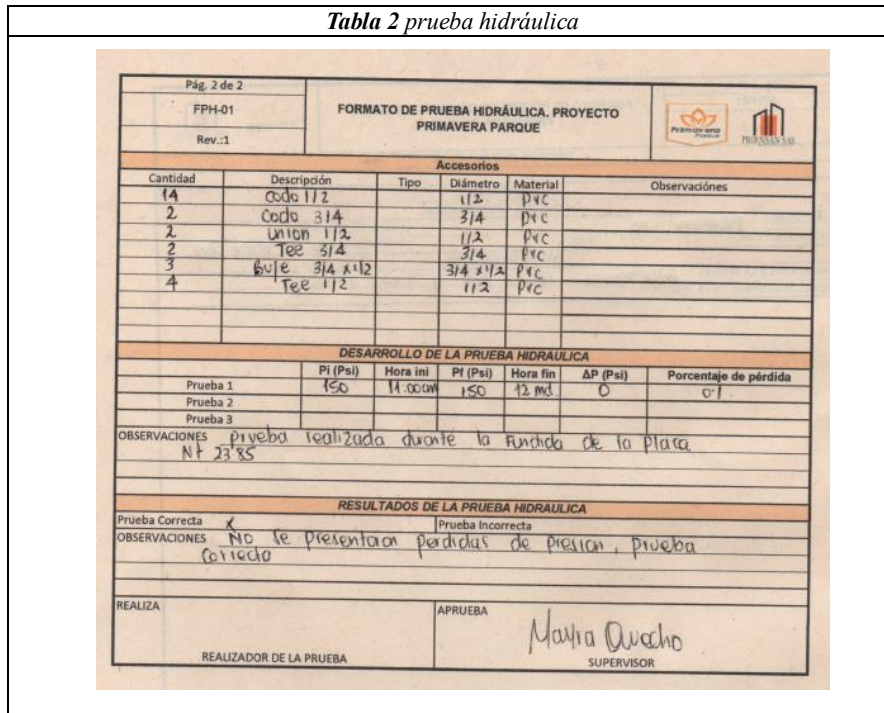 Tabla 2 prueba hidráulica
Pág. 2 de 2
FPH-01
Rev.:1
FORMATO DE PRUEBA HIDRÁULICA. PROYECTO
PRIMAVERA PARQUE
Primavera
Parque
PROENSAN SAS
Accesorios
Cantidad Descripción Tipo Diámetro Material Observaciónes
14 Codo 1/2 1/2 PVC
2 Codo 3/4 3/4 PVC
2 union 1/2 1/2 PVC
2 Tee 3/4 3/4 PVC
3 Buje 3/4 x 1/2 3/4 x 1/2 PVC
4 Tee 1/2 1/2 PVC
DESARROLLO DE LA PRUEBA HIDRAULICA
Pi (Psi) Hora ini Pf (Psi) Hora fin ΔP (Psi) Porcentaje de pérdida
Prueba 1 150 11:00am 150 12 md 0
Prueba 2
Prueba 3
OBSERVACIONES prueba realizada durante la Fundida de la placa
Nt 23'85
RESULTADOS DE LA PRUEBA HIDRAULICA
Prueba Correcta X Prueba Incorrecta
OBSERVACIONES No se presentaron perdidas de presion, prueba
correcta
REALIZA APRUEBA
Mayra
REALIZADOR DE LA PRUEBA SUPERVISOR